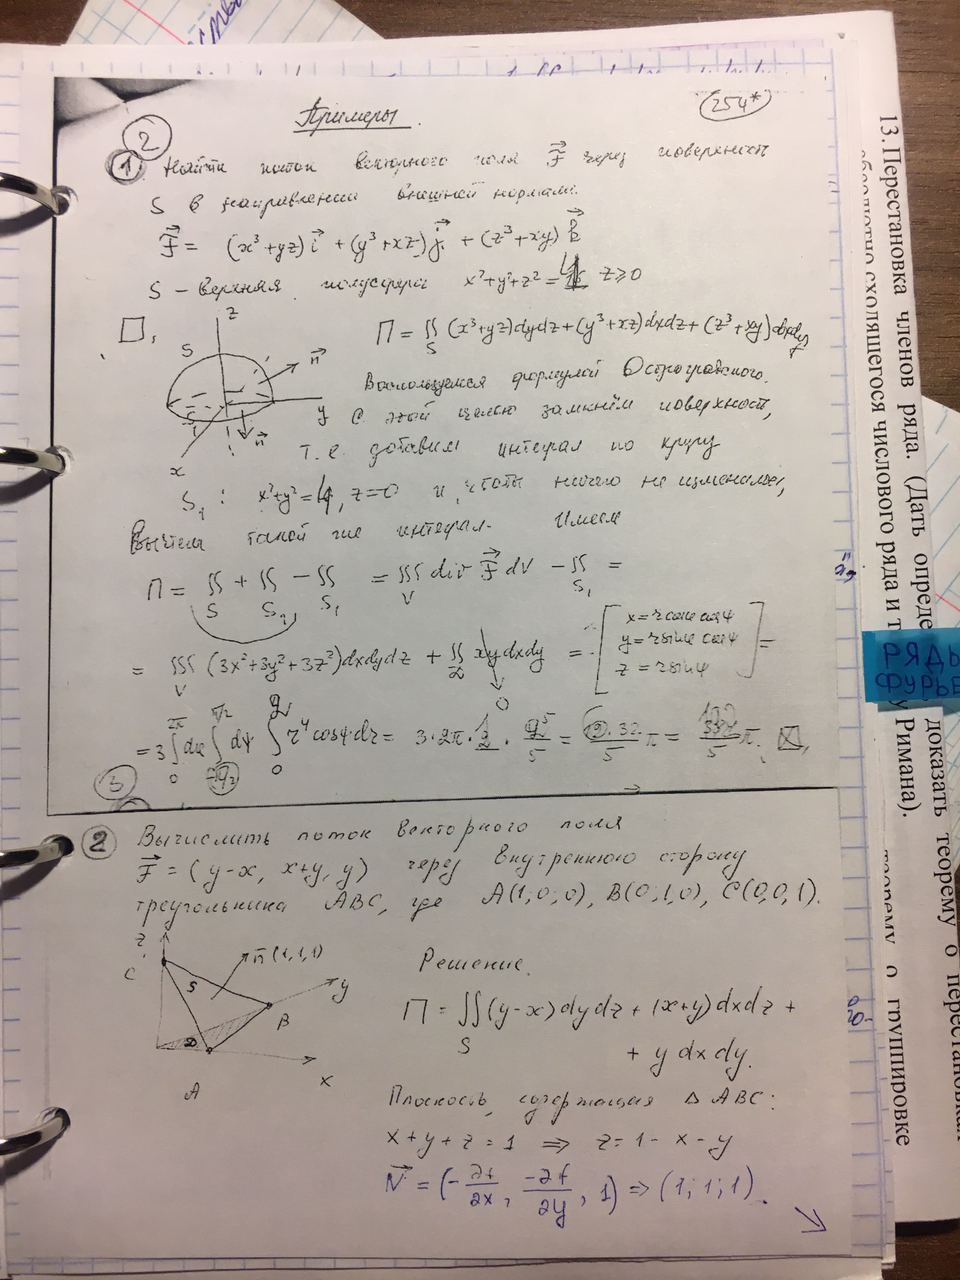 Примеры.
254*
2
1. Найти поток векторного поля F⃗ через поверхность
S в направлении внешней нормали.
F⃗ = (x³+yz) i⃗ + (y³+xz) j⃗ + (z³+xy) k⃗
S – верхняя полусфера x²+y²+z² = 4 z≥0
z
S
n⃗
y
S₁
n⃗
x
П = ∬ (x³+yz)dydz+(y³+xz)dxdz+(z³+xy)dxdy
S
Воспользуемся формулой Остроградского.
С этой целью замкнём поверхность,
т.е. добавим интеграл по кругу
S₁ : x²+y²=4, z=0 и, чтобы ничего не изменилось,
вычтем такой же интеграл. Имеем
П = ∬ + ∬ − ∬ = ∭ div F⃗ dV − ∬ =
S S₁ S₁ V S₁
= ∭ (3x²+3y²+3z²)dxdydz + ∬ xydxdy = [x = r cosφ cosψ
y = r sinφ cosψ
z = r sinψ] =
V D 0
= 3 ∫ dφ ∫ dψ ∫ r⁴ cosψ dr = 3·2π· · 2⁵/5 = π = 192/5 π.
3
2 Вычислить поток векторного поля
F⃗ = (y−x, x+y, y) через внутреннюю сторону
треугольника ABC, где A(1;0;0), B(0;1,0), C(0,0,1).
z
C
S
n⃗ (1,1,1)
y
B
D
x
A
Решение.
П = ∬ (y−x) dydz + (x+y) dxdz +
S
+ y dxdy.
Плоскость, содержащая Δ ABC:
x+y+z=1 ⇒ z=1−x−y
N⃗ = (−∂f/∂x, −∂f/∂y, 1) ⇒ (1;1;1).
13. Перестановка членов ряда. (Дать опреде
доказать теорему о перестановках
абсолютно сходящегося числового ряда и т
у Римана).
теорему о группировке
РЯДЫ
ФУРЬЕ